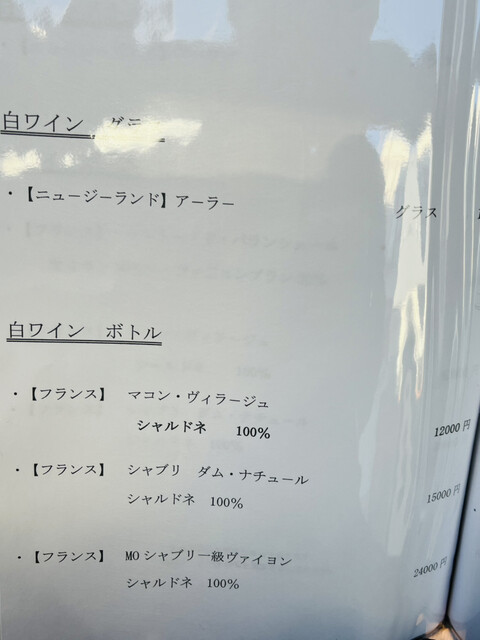 白ワイン
・【ニュージーランド】アーラー
グラス
白ワイン ボトル
・【フランス】 マコン・ヴィラージュ
シャルドネ 100%
12000 円
・【フランス】 シャブリ ダム・ナチュール
シャルドネ 100%
15000 円
・【フランス】 MO シャブリ一級ヴァイヨン
シャルドネ 100%
24000 円